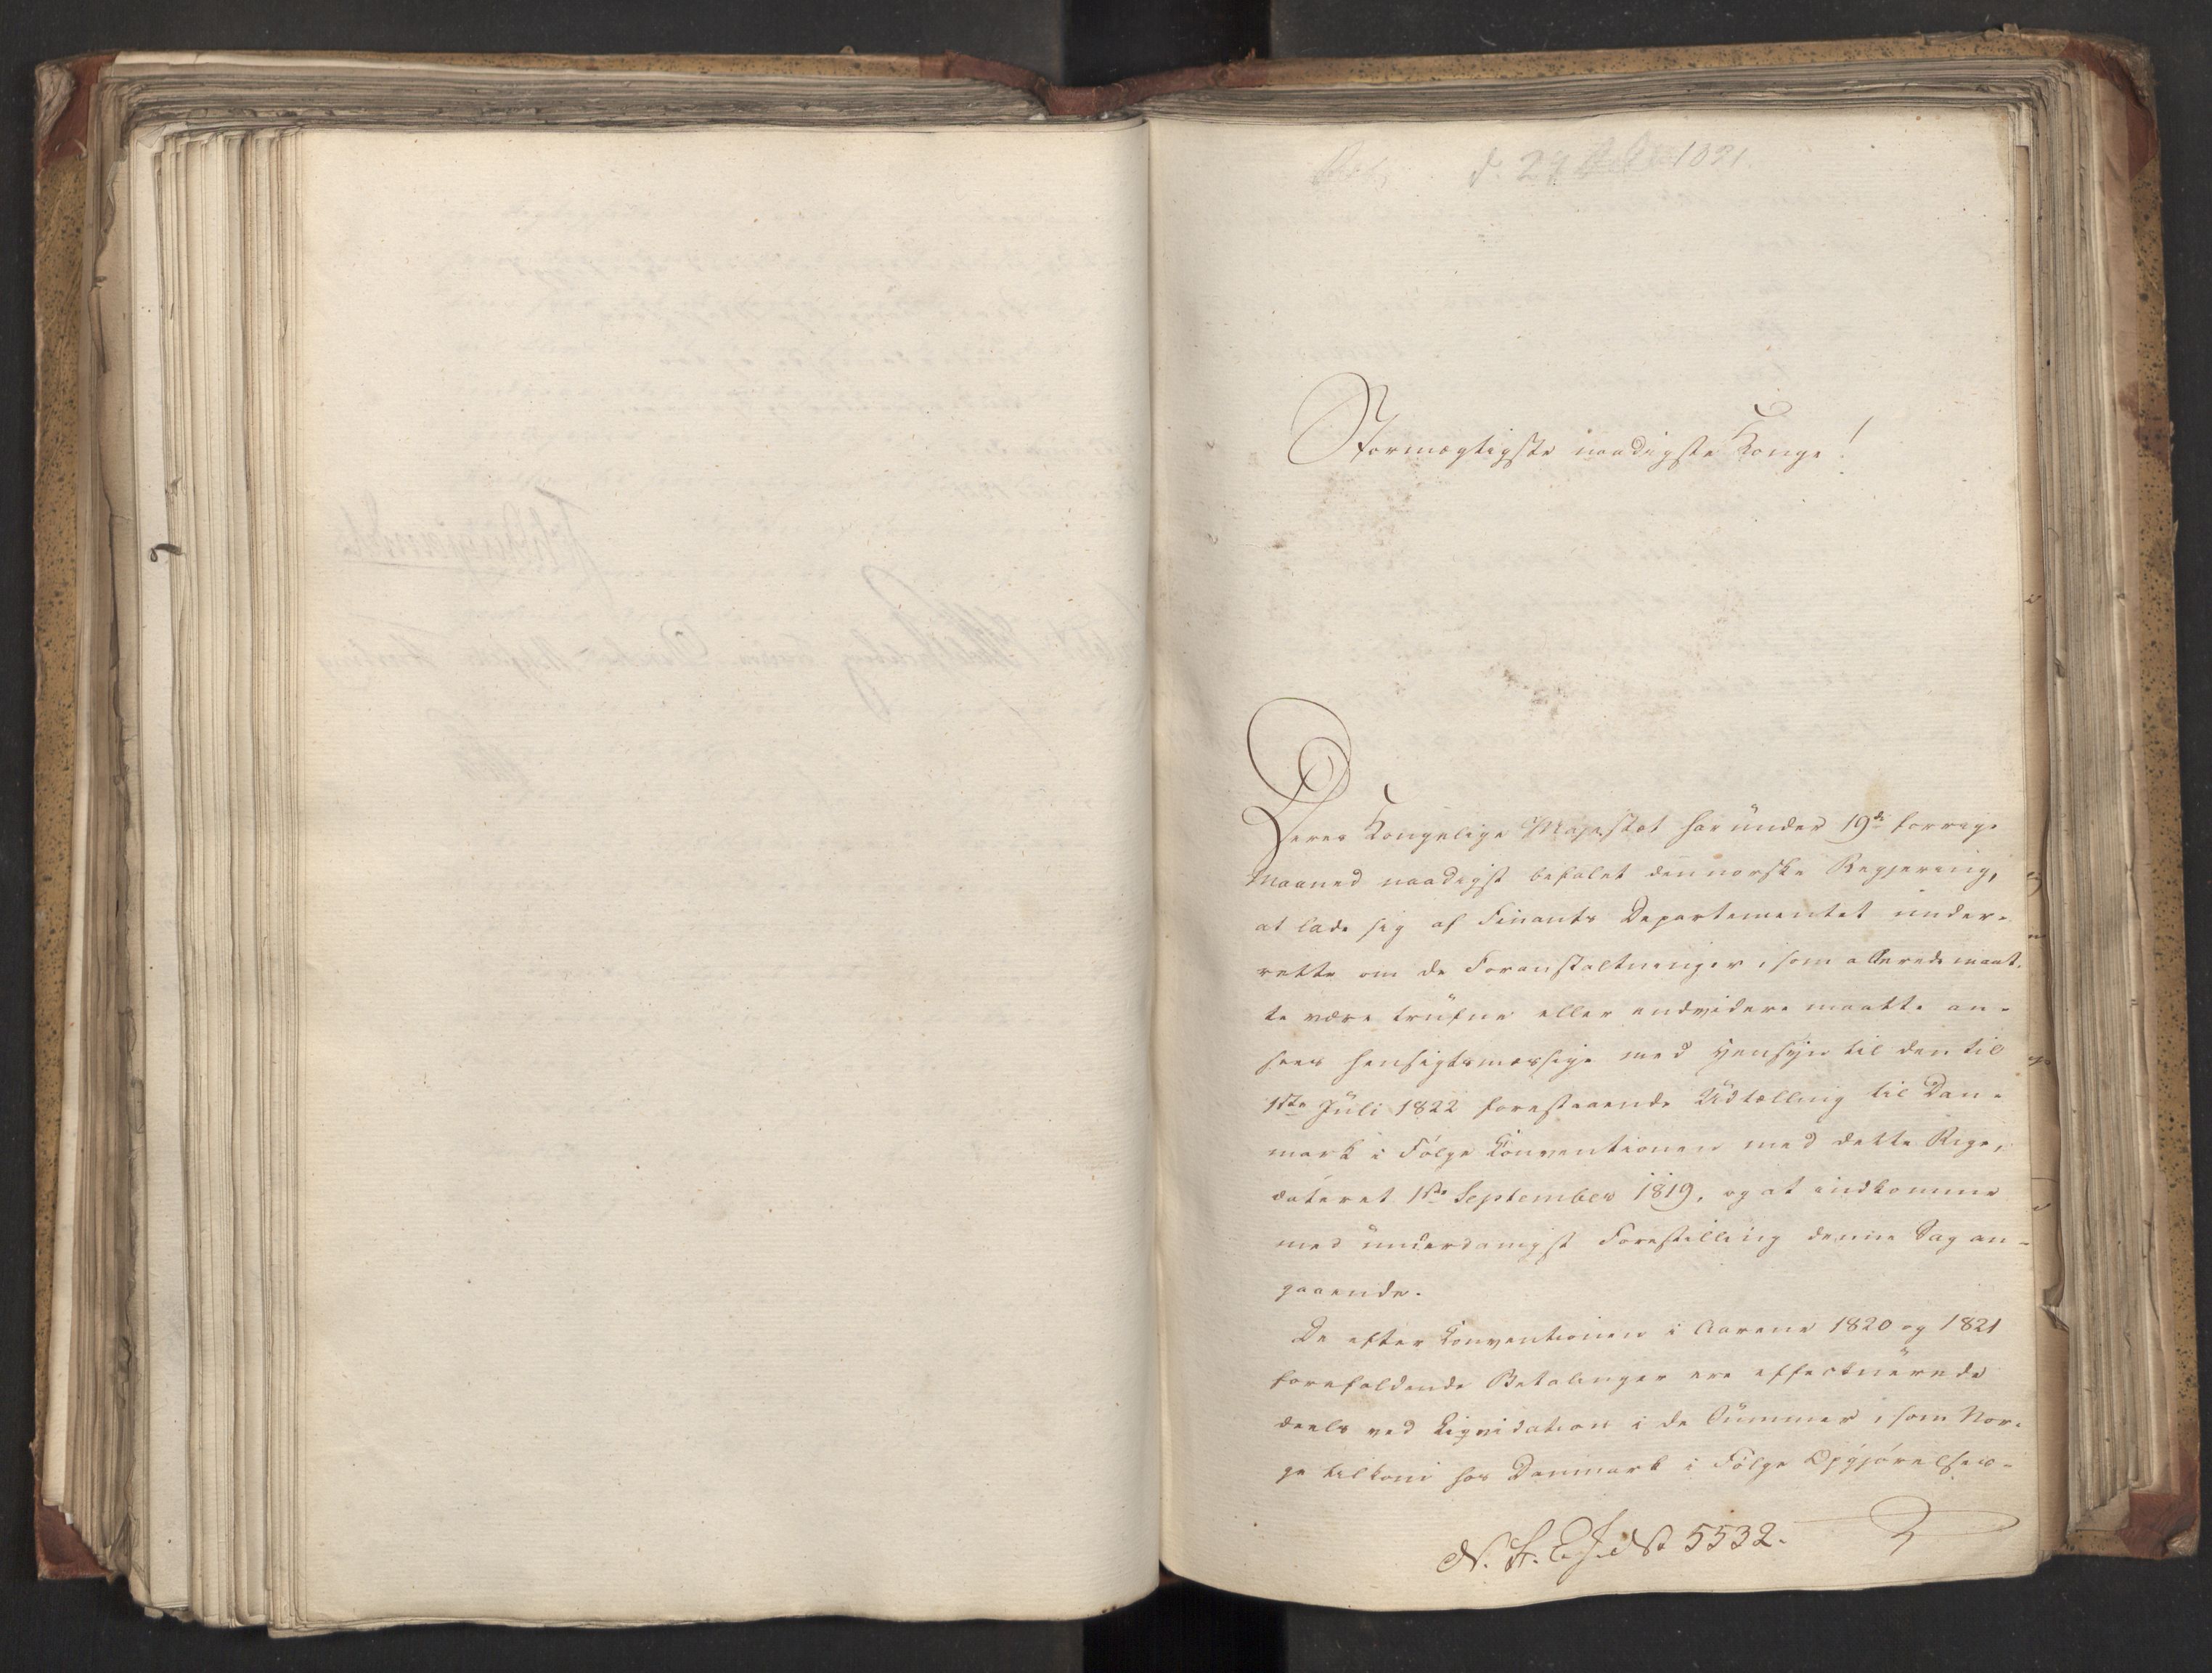 d. 27 1821.
Stormægtigste naadigste Konge!
Deres Kongelige Majestæt har under 19de forrige
Maaned naadigst befalet den norske Regjering,
at lade sig af Finants Departementet under-
rette om de Foranstaltninger, som allerede maat-
te være trufne eller endvidere maatte an-
sees hensigtsmæssige med Hensyn til den til
1ste Juli 1822 forestaaende Udtælling til Dan-
mark i Følge Konventionen med dette Rige,
dateret 1ste September 1819, og at indkomme
med underdanigst Forestilling denne Sag an-
gaaende.
De efter Konventionen i Aarene 1820 og 1821
forefaldende Betalinger ere effectuerede
deels ved Liqvidation i de Summer, som Nor-
ge tilkom hos Danmark i Følge Opgjørelses-
N. S. E. J. No 5532.